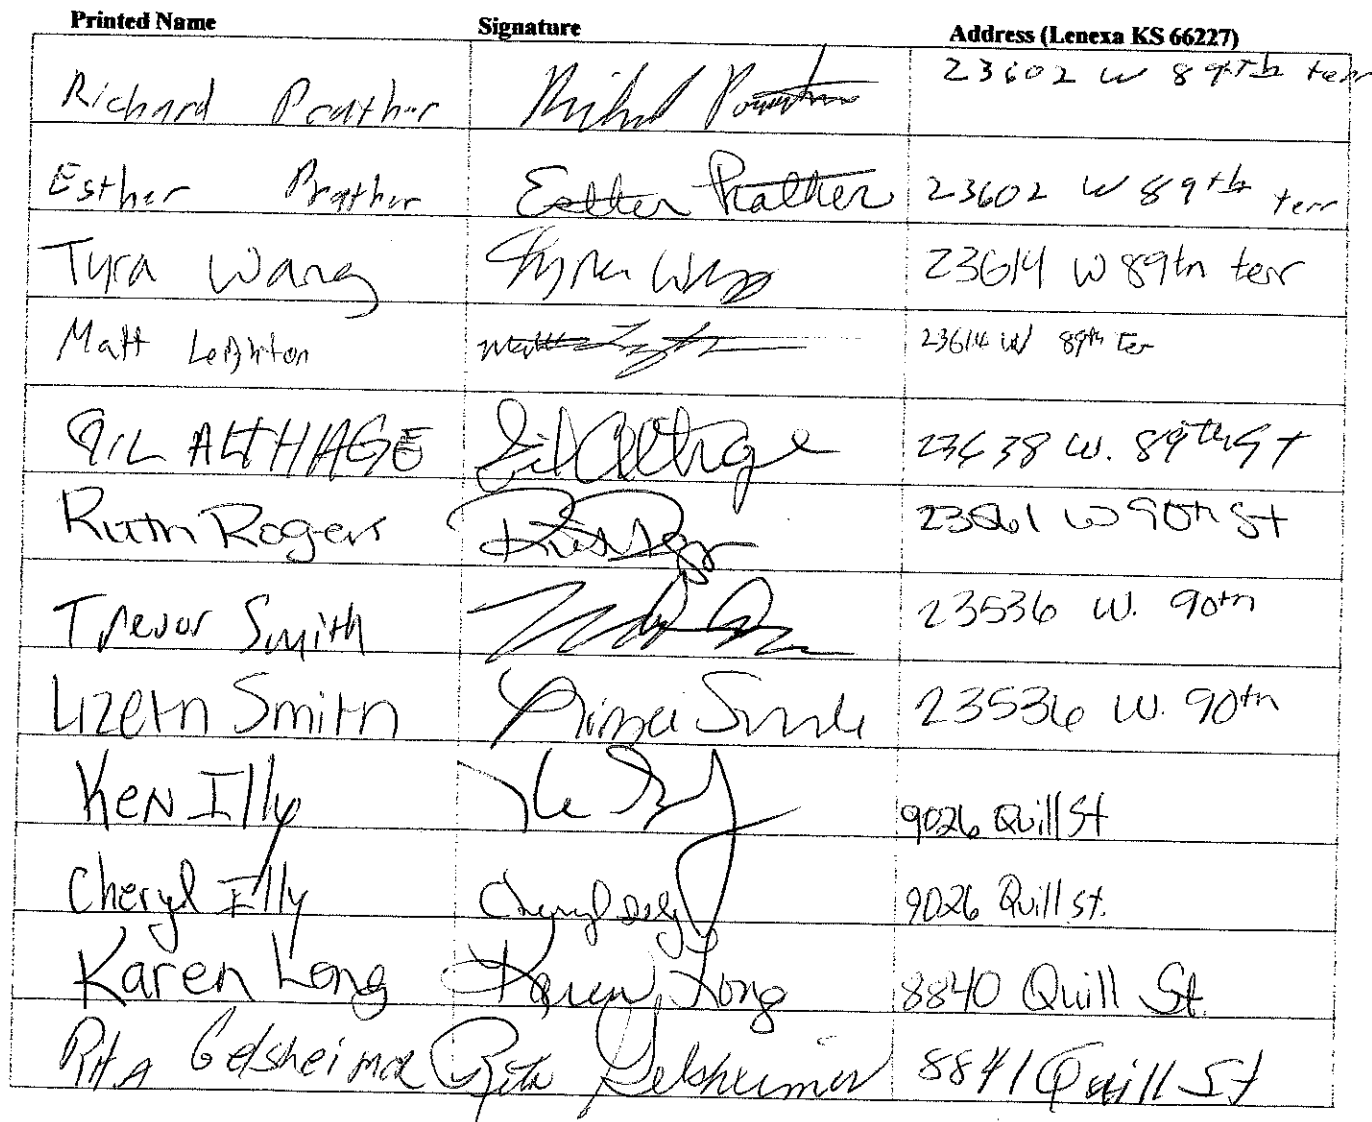 Printed Name Signature Address (Lenexa KS 66227)
Richard Prather 23602 W 89th terr
Esther Prather Esther Prather 23602 W 89th terr
Tyra Wang Tyra Wang 23614 W 89th terr
Matt Leighton Matt 23614 W 89th ter
GIL ALTHAGE Gil Althage 23638 W. 89th St
Ruth Rogers W 90th St
Trevor Smith 23536 W. 90th
Lizeth Smith 23536 W. 90th
Ken Illy 9026 Quill St
Cheryl Illy Cheryl Illy 9026 Quill St.
Karen Long Karen Long 8840 Quill St.
Rita Gelsheimer Rita Gelsheimer 8841 Quill St